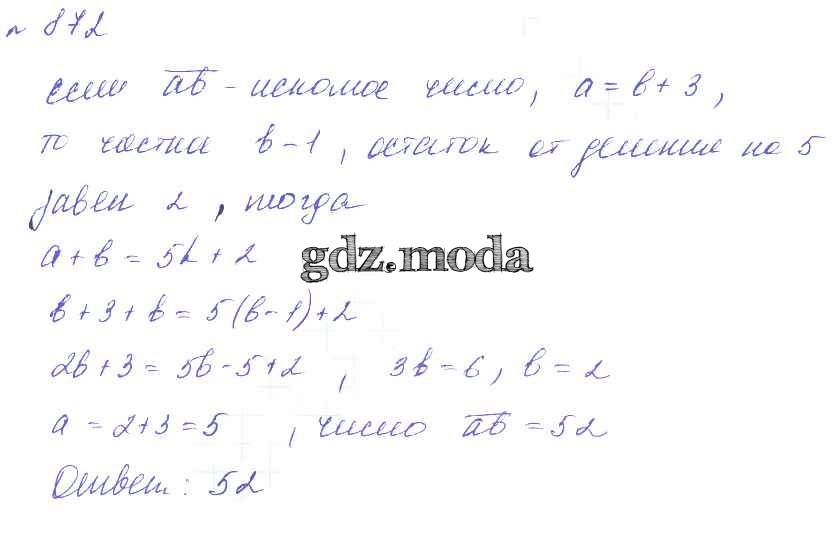 № 872
если ab - искомое число, a = b + 3,
то частка b - 1, остаток от деления на 5
равен 2, тогда
a + b = 5k + 2
gdz.moda
b + 3 + b = 5(b - 1) + 2
2b + 3 = 5b - 5 + 2, 3b = 6, b = 2
a = 2 + 3 = 5, число ab = 52
Ответ: 52